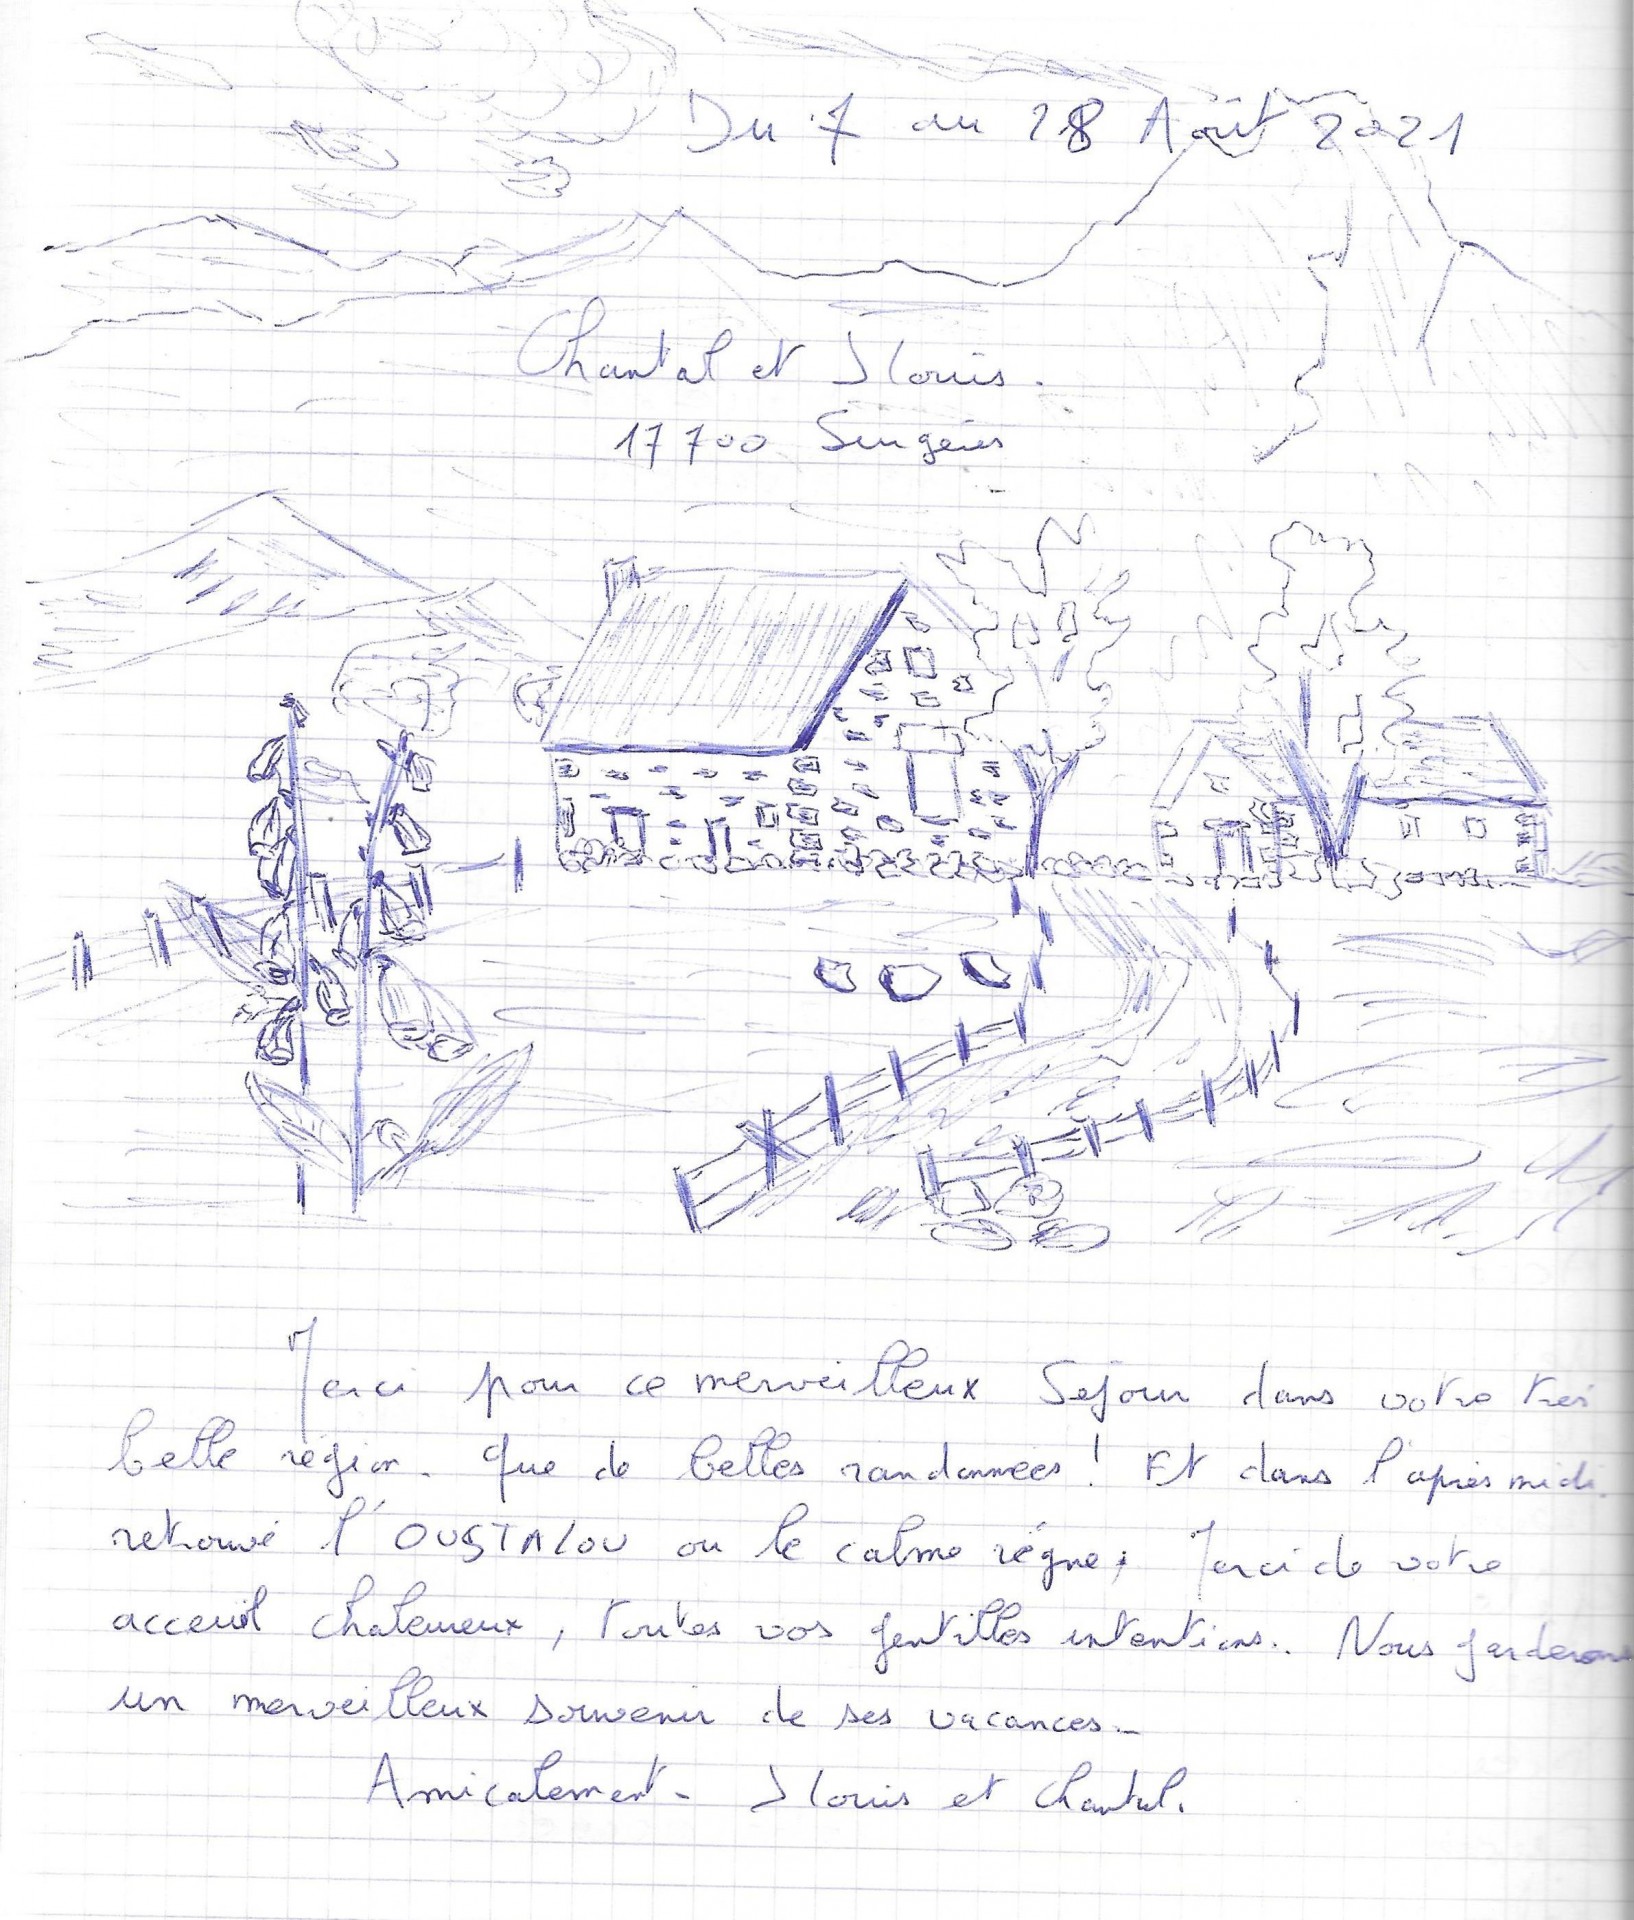 Du 7 au 28 Août 2021
Chantal et JLouis.
17700 Surgères
Merci pour ce merveilleux Séjour dans votre très
belle région. Que de belles randonnées ! Et dans l'après midi
retrouvé l'OUSTALOU ou le calme règne, Merci de votre
acceuil chaleureux, toutes vos gentilles intentions. Nous garderons
un merveilleux souvenir de ses vacances.
Amicalement - JLouis et Chantal.